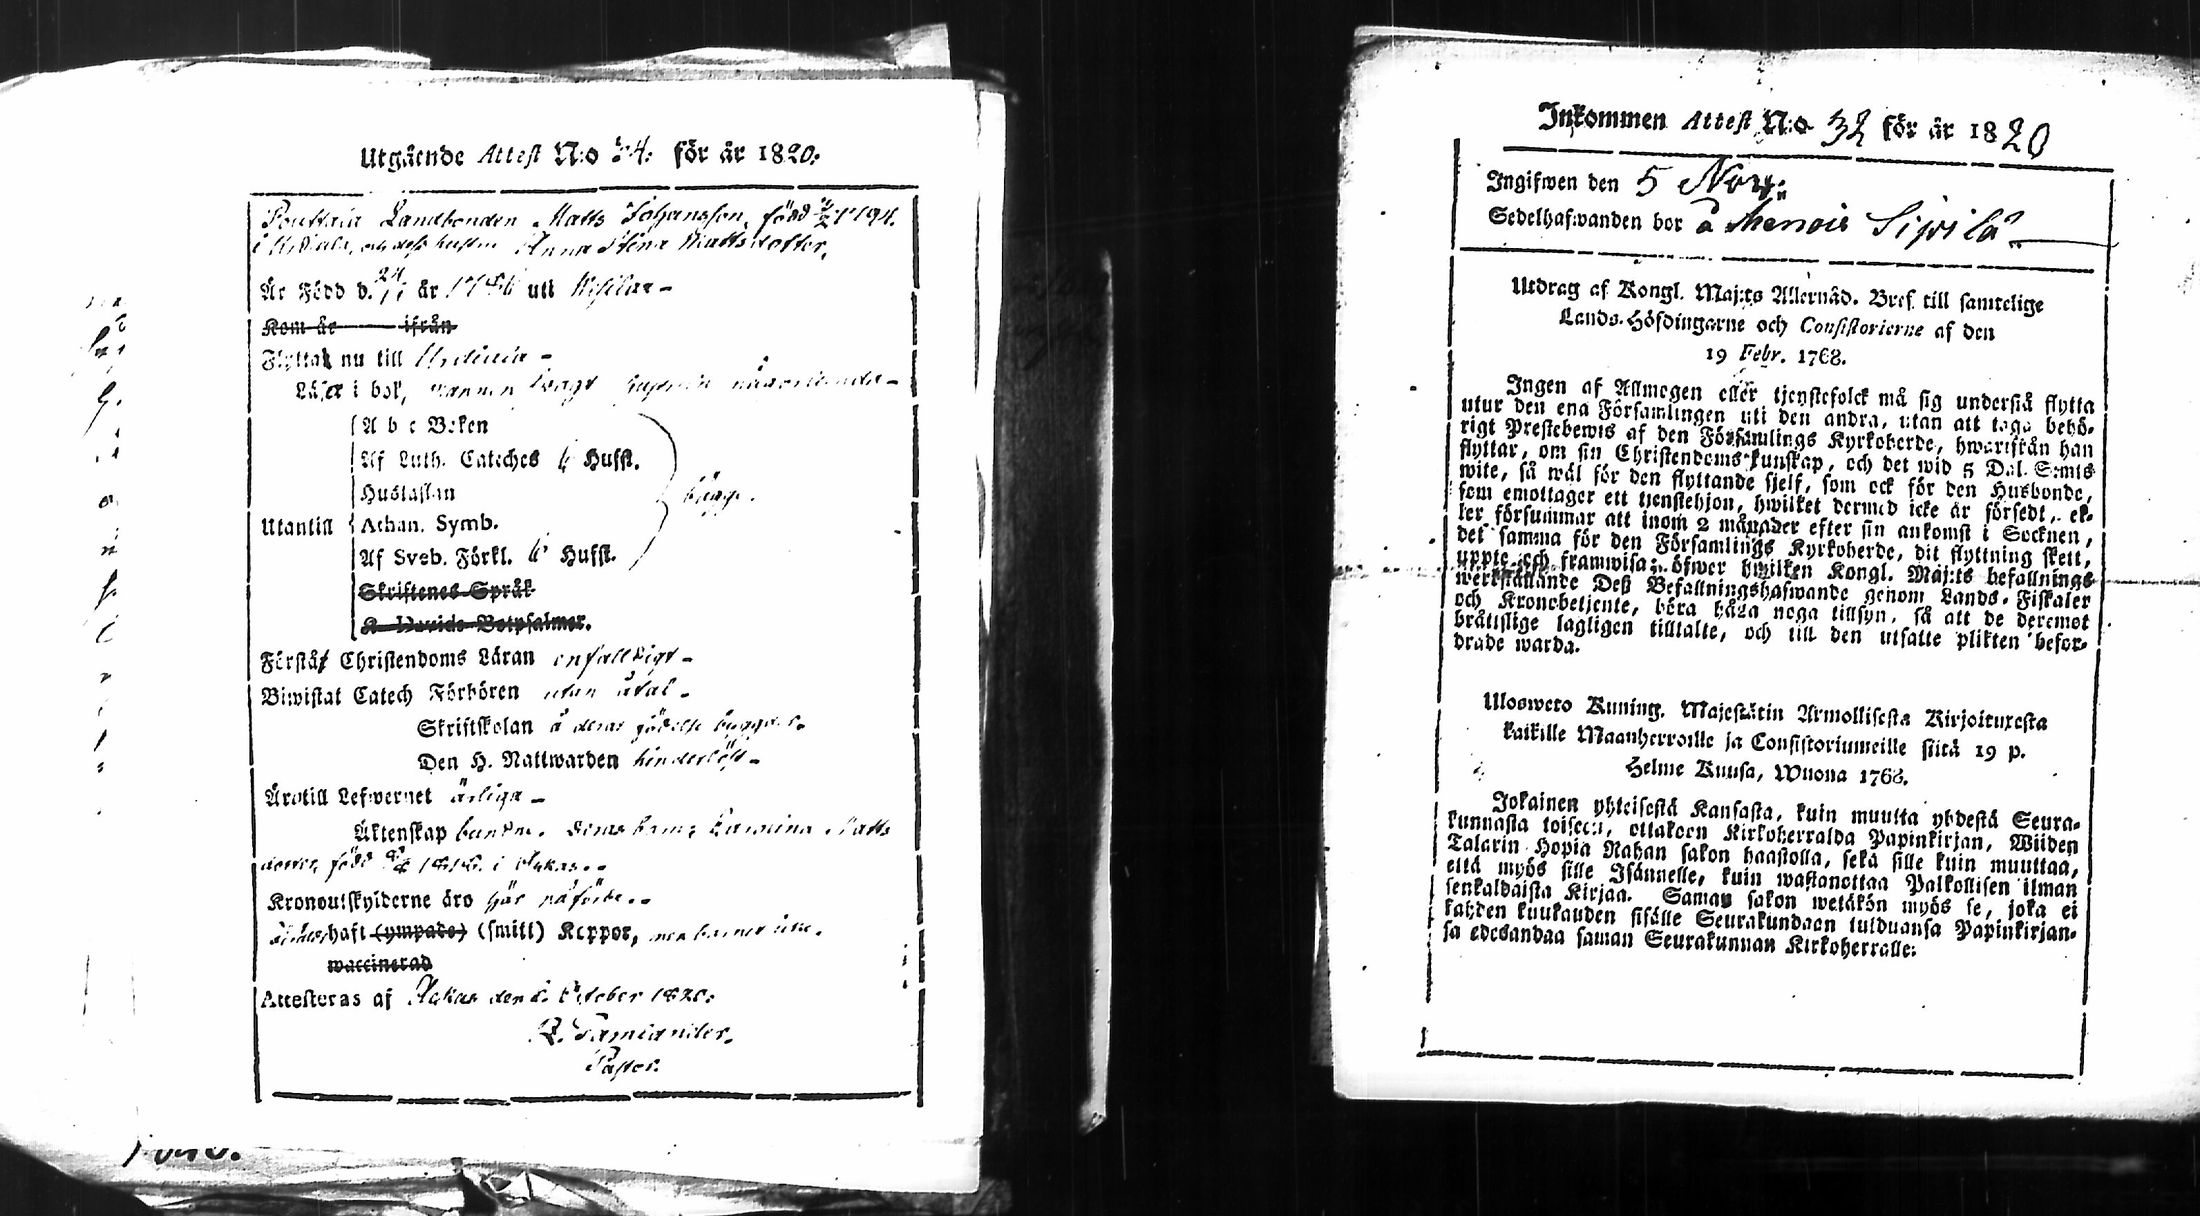 Utgående Attest N:o 34. för år 1820.
Landbonden Matts Johansson, född 1791.
i Urdiala, och dess hustru Anna Stina Mattsdotter,
Är Född d. 24/1 år 1786 uti
Kom år ifrån
Flyttar nu till Urdiala -
Läsa i bok, mannen svagt hustrun någorlunda -
A b c Boken
Af Luth. Cateches 6 Hufst.
Hustaflan
bägge.
Utantill Athan. Symb.
Af Sveb. Förkl. 6 Hufst.
Skriftenes Språk
K Davids Botpsalmer.
Förstå Christendoms Läran enfalldigt -
Biwistat Catech Förhören utan åtal -
Skriftskolan å deras
Den H. Nattwarden hinderlöst -
Äro till Lefwernet ärliga -
Äktenskap bundne. Deras barn: Carolina Matts
dotter, född 1818. i Ackas.
Kronoutskylderne äro här påförde.
haft (ympade) (smitt) Koppor, men barnet icke.
waccinerad
Attesteras af Ackas den October 1820.
Pastor.
Inkommen Attest N:o 32 för år 1820
Ingifwen den 5 Nov.:
Sedelhafwanden bor å Menois Sipilä
Utdrag af Kongl. Maj:ts Allernåd. Bref till samtelige
Lands-Höfdingarne och Consistorierne af den
19 Febr. 1768.
Ingen af Allmogen eller tjenstefolck må sig understå flytta
utur den ena Församlingen uti den andra, utan att taga behö-
rigt Prestebewis af den Församlings Kyrkoherde, hwarifrån han
flyttar, om sin Christendoms kunskap, och det wid 5 Dal. S:mts
wite, så wäl för den flyttande sjelf, som ock för den Husbonde,
som emottager ett tjenstehjon, hwilket dermed icke är försedt, el-
ler försummar att inom 2 månader efter sin ankomst i Socknen,
det samma för den Församlings Kyrkoherde, dit flyttning skett,
uppte och framwisa; öfwer hwilken Kongl. Maj:ts befallnings
werkställande Deß Befallningshafwande genom Lands-Fiskaler
och Kronobetjente, böra hålla noga tillsyn, så att de deremot
bråttslige lagligen tilltalte, och till den utsatte plikten befor-
drade warda.
Ulosweto Kuning. Majestätin Armollisesta Kirjoituxesta
kaikille Maanherroille ja Consistoriumeille siitä 19 p.
Helme Kuusa, Wuona 1768.
Jokainen yhteisestä Kansasta, kuin muutta yhdestä Seura-
kunnasta toiseen, ottakoon Kirkoherralda Papinkirjan, Wiiden
Talarin Hopia Rahan sakon haastolla, sekä sille kuin muuttaa,
että myös sille Isännelle, kuin wastanottaa Palkollisen ilman
senkaldaista Kirjaa. Saman sakon wetäkön myös se, joka ei
kahden kuukauden sisälle Seurakundaan tulduansa Papinkirjan-
sa edesandaa saman Seurakunnan Kirkoherralle.